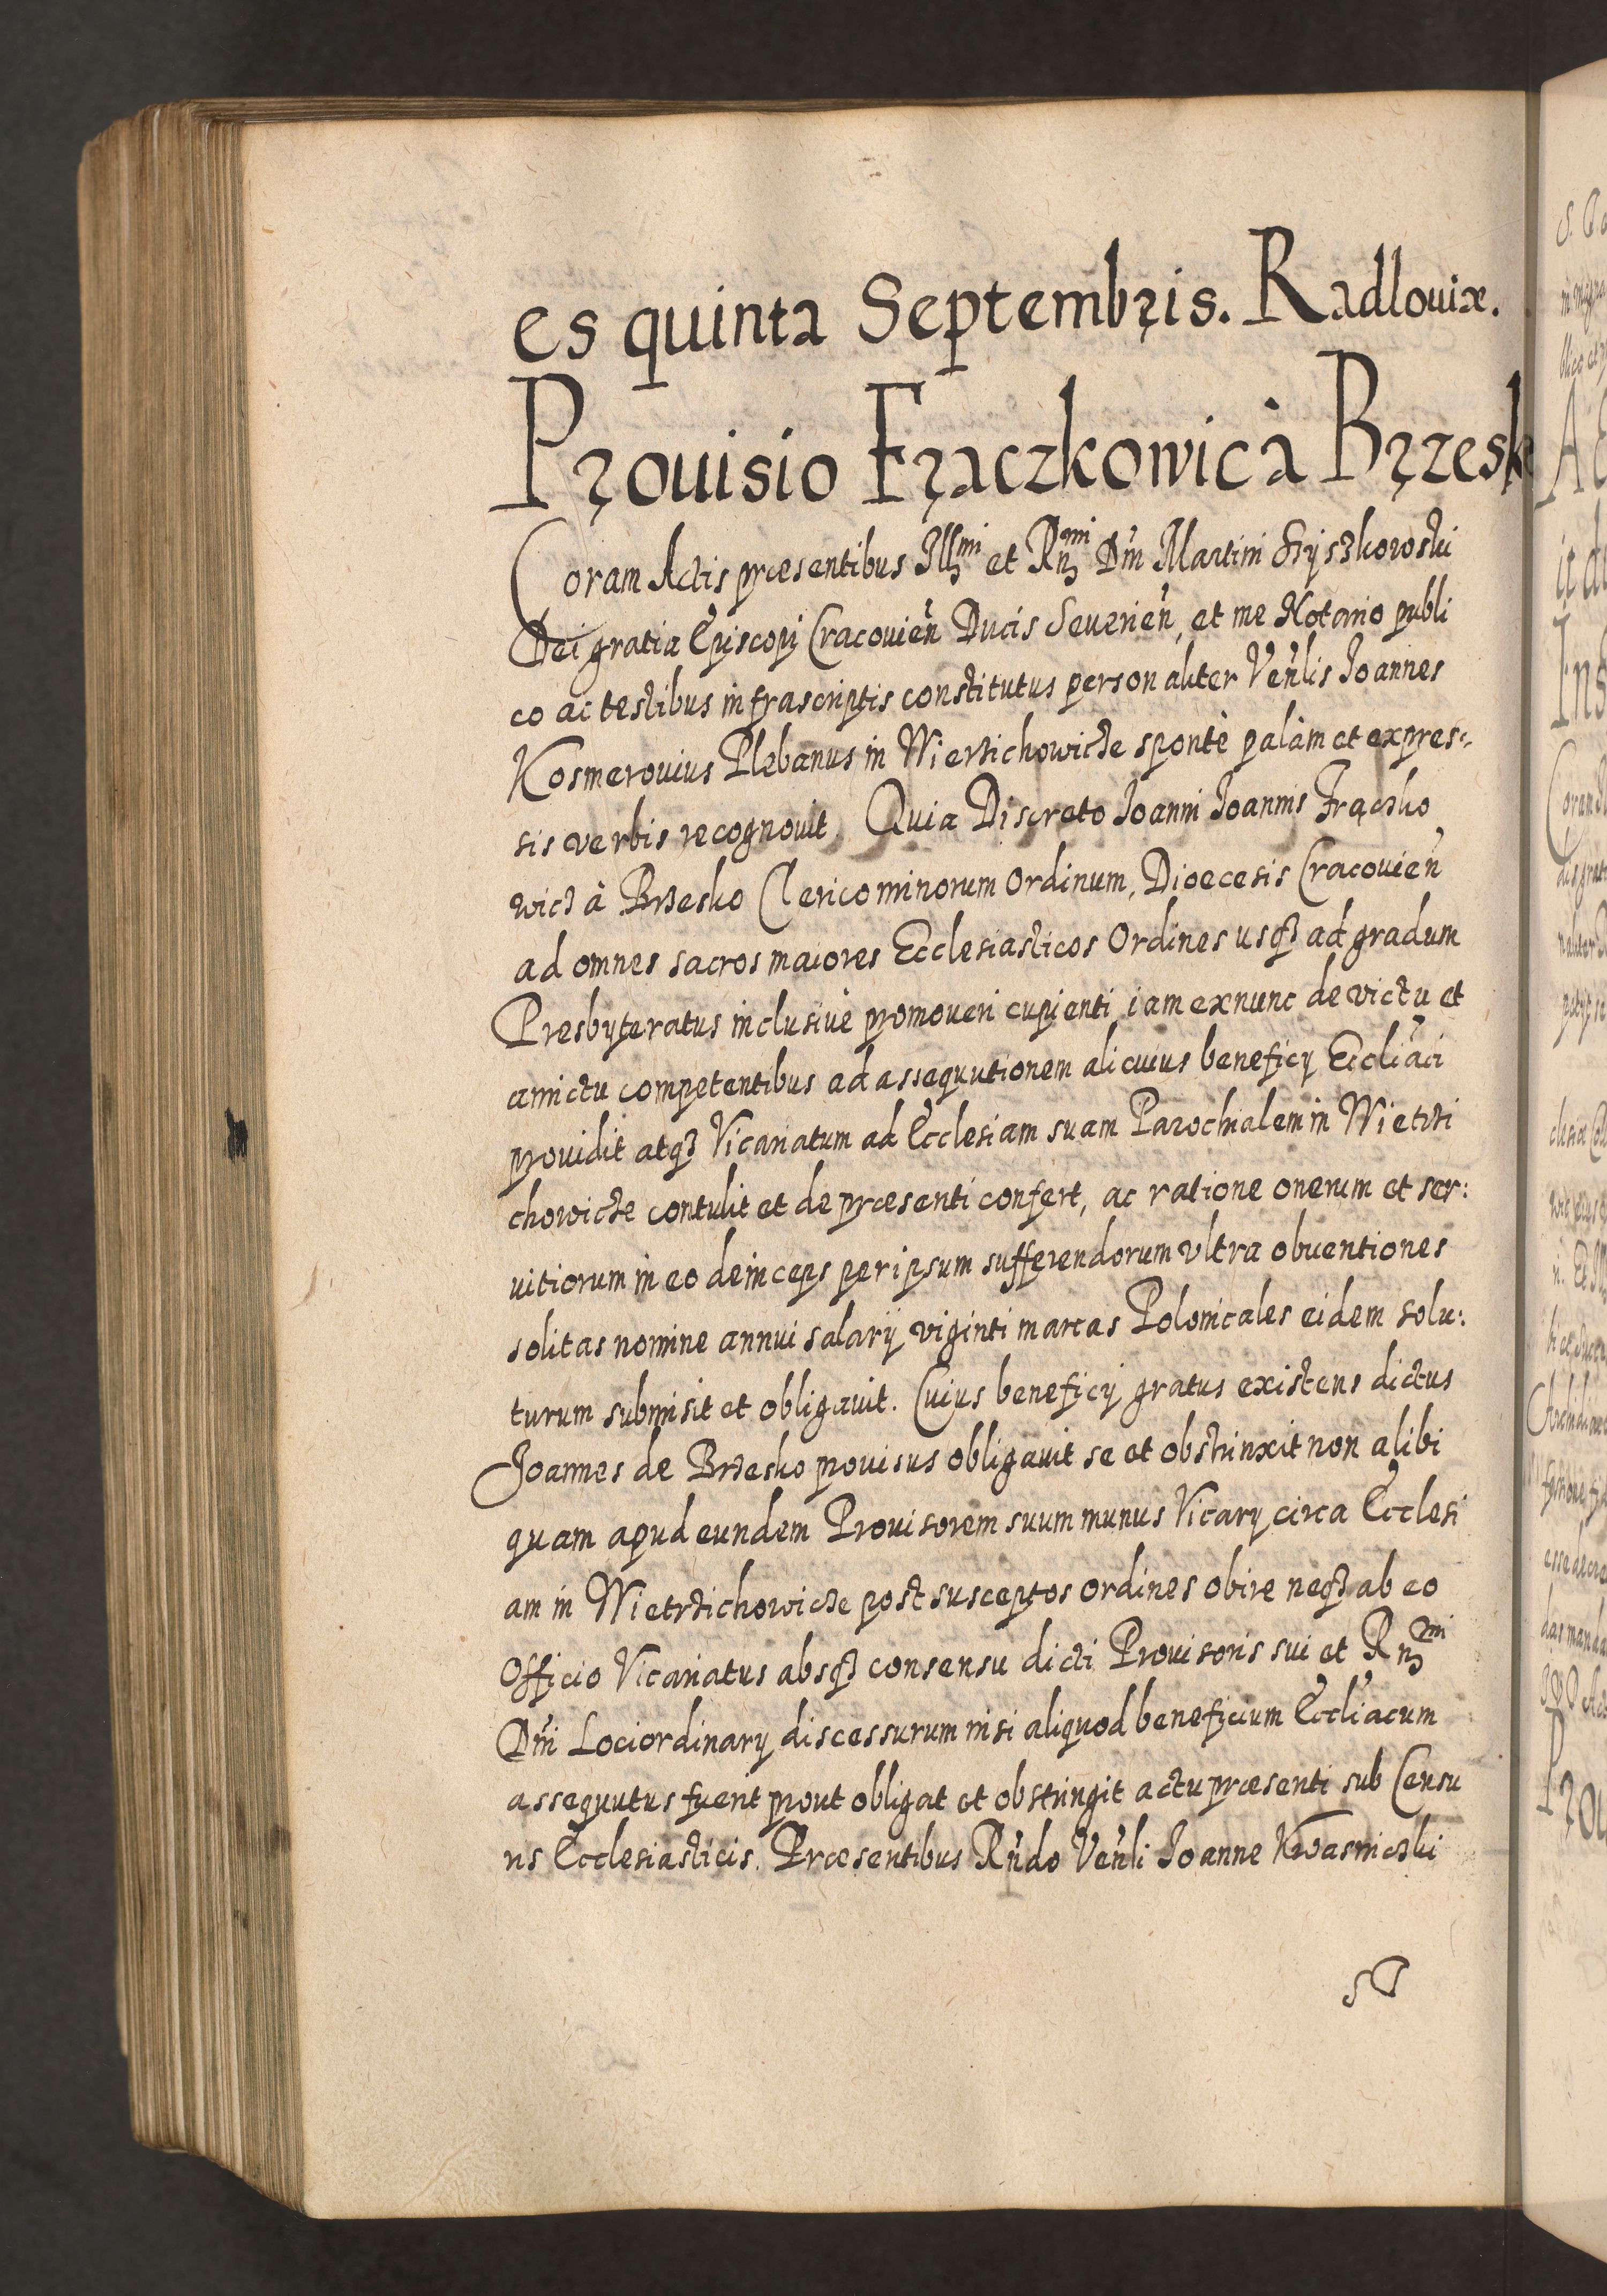 es quinta Septembris. Radlouiæ.
Prouisio Frączkowic à Brzesk
Coram Actis præsentibus Illmi et Rndmi Dñi Martini Szyszkowski
Dei gratia Episcopi Cracovień Ducis Severień, et me Notario publi
co ac testibus infrascriptis constitutus personaliter Venlis Joannes
Kosmerovius Plebanus in Wierzichowicze spontè palàm et expres-
sis verbis recognovit. Quia Discreto Joanni Joannis Frączko
wicz à Brzesko Clerico minorum Ordinum, Dioecesis Cracovień
ad omnes sacros maiores Ecclesiasticos Ordines usq3 ad gradum
Presbyteratus inclusiuè promoveri cupienti iam exnunc de victu et
amictu competentibus ad assequutionem alicuius beneficy Eccliaci
providit atq3 Vicariatum ad Ecclesiam suam Parochialem in Wietrzi
chowicze contulit et de præsenti confert, ac ratione onerum et ser:
vitiorum in eo deinceps per ipsum sufferendorum vltra obventiones
solitas nomine annui salarij viginti marcas Polonicales eidem solu:
turum submisit et obligavit. Cuius beneficij gratus existens dictus
Joannes de Brzesko provisus obligavit se et obstrinxit non alibi
quam apud eundem Provisorem suum munus Vicary circa Ecclesi
am in Wietrzichowicze post susceptos ordines obire neq3 ab eo
Officio Vicariatus absq3 consensu dicti Provisoris sui et Rndmi
Dñi Loci ordinary discessurum nisi aliquod beneficium Eccliacum
assequutus fuerit prout obligat et obstringit actu præsenti sub Censu
ris Ecclesiasticis. Præsentibus Rńdo Venli Joanne Kwasniczki